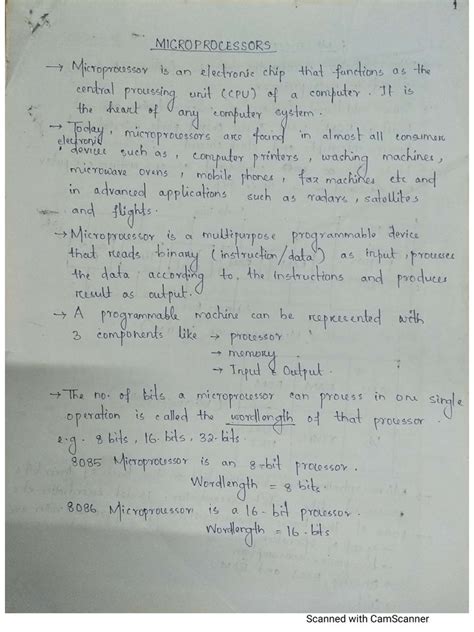 1
MICROPROCESSORS
→ Microprocessor is an electronic chip that functions as the
central processing unit (CPU) of a computer. It is
the heart of any computer system.
→ Today, microprocessors are found in almost all consumer
electronic devices such as, computer printers, washing machines,
microwave ovens, mobile phones, fax machines etc and
in advanced applications such as radars, satellites
and flights.
→ Microprocessor is a multipurpose programmable device
that reads binary (instruction/data) as input, processes
the data according to the instructions and produces
result as output.
→ A programmable machine can be represented with
3 components like → processor
→ memory
→ Input & Output.
→ The no. of bits a microprocessor can process in one single
operation is called the wordlength of that processor.
e.g. 8 bits, 16. bits, 32. bits.
8085 Microprocessor is an 8-bit processor.
Wordlength = 8 bits.
8086 Microprocessor is a 16-bit processor.
Wordlength = 16-bits
Scanned with CamScanner